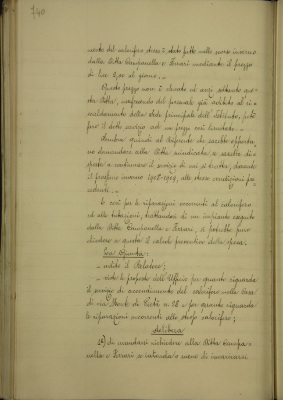 740
mento del calorifero stesso è stato fatto nello scorso inverno
dalla Ditta Campanella e Ferrari mediante il prezzo
di lire 2,00 al giorno.
Questo prezzo non è elevato ed anzi soltanto que-
sta Ditta, usufruendo del personale già adibito al ri-
scaldamento della sede principale dell'Istituto, può
fare il detto servizio ad un prezzo così limitato.
Sembra quindi al riferente che sarebbe opportu-
no domandare alla Ditta suindicata se sarebbe di-
sposta a riassumere il servizio di cui si tratta, durante
il prossimo inverno 1908-1909, alle stesse condizioni pre-
cedenti.
E così per le riparazioni occorrenti al calorifero
ed alle tubazioni, trattandosi di un impianto eseguito
dalla Ditta Campanella e Ferrari, si potrebbe pure
chiedere a questa il calcolo preventivo della spesa;
Essa Giunta:
udito il Relatore;
viste le proposte dell'Ufficio per quanto riguarda
il servizio di accendimento del calorifero nella Casa
di via Monte di Pietà n. 12 e per quanto riguarda
le riparazioni occorrenti allo stesso calorifero;
delibera
di mandarsi richiedere alla Ditta Campa-
nella e Ferrari se intenda o meno di incaricarsi